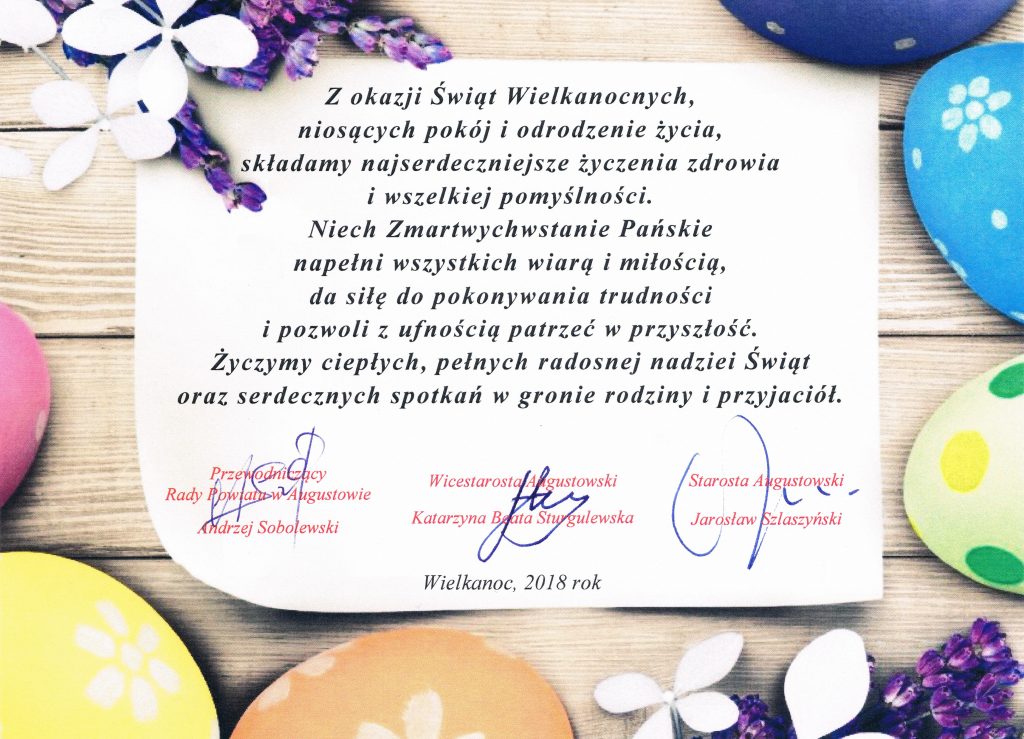 Z okazji Świąt Wielkanocnych,
niosących pokój i odrodzenie życia,
składamy najserdeczniejsze życzenia zdrowia
i wszelkiej pomyślności.
Niech Zmartwychwstanie Pańskie
napełni wszystkich wiarą i miłością,
da siłę do pokonywania trudności
i pozwoli z ufnością patrzeć w przyszłość.
Życzymy ciepłych, pełnych radosnej nadziei Świąt
oraz serdecznych spotkań w gronie rodziny i przyjaciół.
Przewodniczący
Rady Powiatu w Augustowie
Andrzej Sobolewski
Wicestarosta Augustowski
Katarzyna Beata Sturgulewska
Starosta Augustowski
Jarosław Szlaszyński
Wielkanoc, 2018 rok